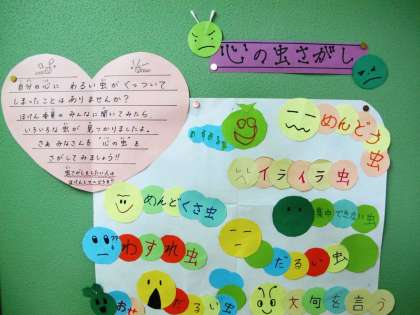 心の虫さがし
自分の心に わるい虫が くっついて
しまったことは ありませんか？
ほけん委員の みんなに聞いてみたら
いろいろな 虫が 見つかりましたよ。
さあ みなさんも 心の虫を
さがしてみましょう!!
めんどナ虫
イライラ虫
めんどくさ虫
集中できない虫
わすれ虫
だるい虫
だるい虫
文句を言う